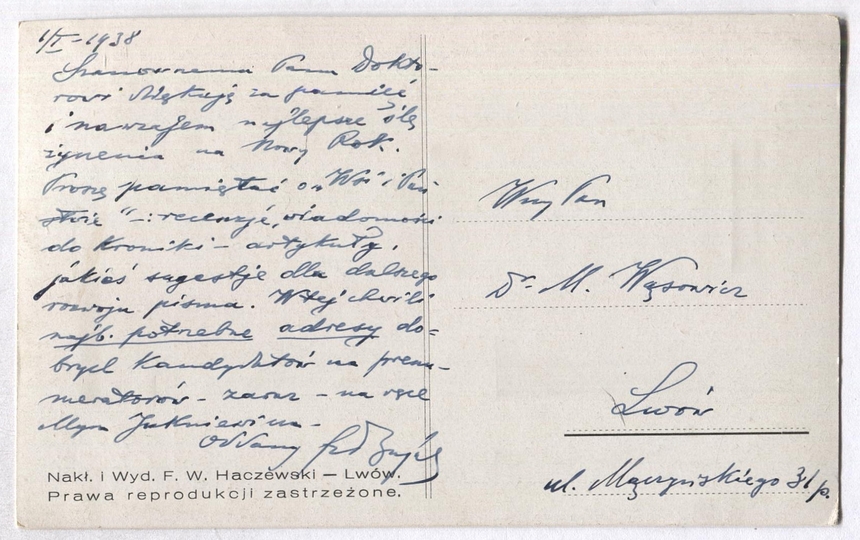 1/I - 1938
Szanownemu Panu Dokto-
rowi dziękuję za pamięć
i nawzajem najlepsze ślę
życzenia na Nowy Rok.
Proszę pamiętać o „Wsi i Pań
stwie" -: recenzje, wiadomości
do Kroniki - artykuły,
jakieś sugestje dla dalszego
rozwoju pisma. W tej chwili
najb. potrzebne adresy do=
brych kandydatów na prenu-
meratorów - zaraz - na ręce
Mgra
Oddany
Nakł. i Wyd. F. W. Haczewski — Lwów.
Prawa reprodukcji zastrzeżone.
Wny Pan
Dr M. Wąsowicz
Lwów
ul. Mączyńskiego